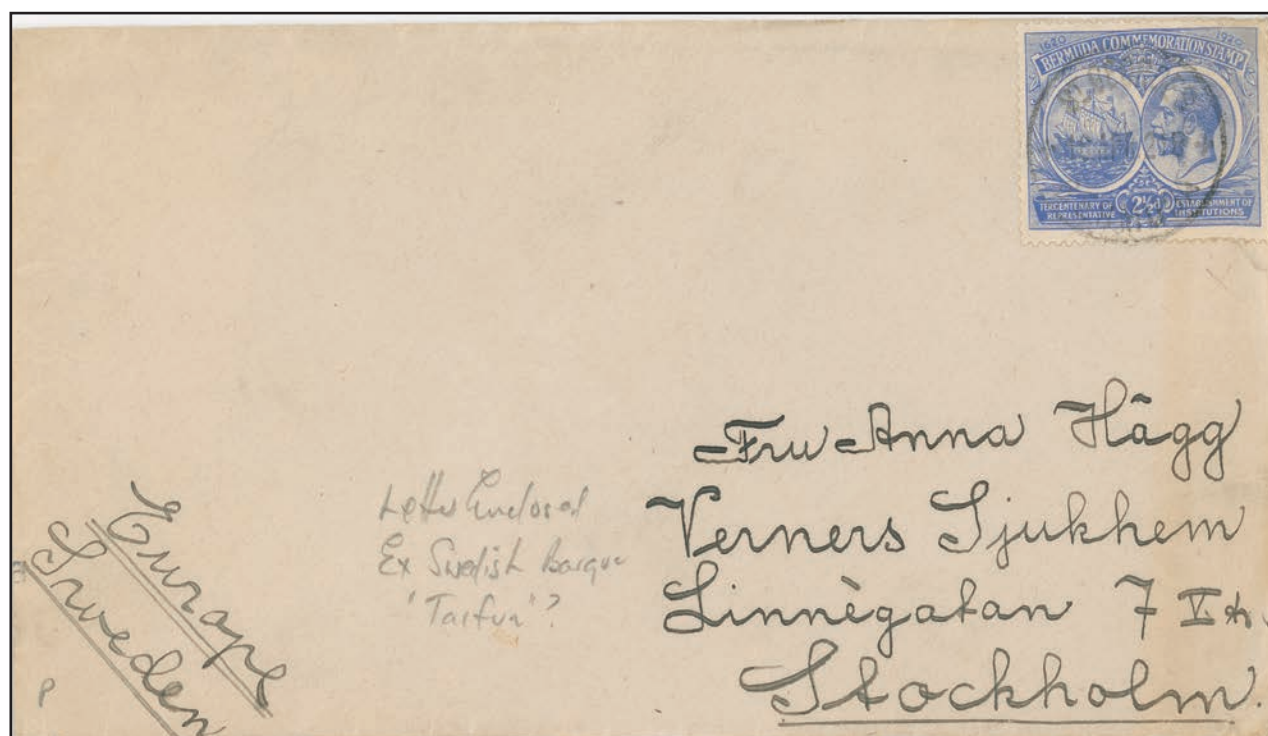 1620 1920
BERMUDA COMMEMORATION STAMP
TERCENTENARY OF REPRESENTATIVE
2½d
ESTABLISHMENT OF INSTITUTIONS
Fru Anna Hägg
Verners Sjukhem
Linnègatan 7 V tr.
Stockholm.
Letter Enclosed
Ex Swedish Barque
'Taifun'?
Europe
Sweden
P